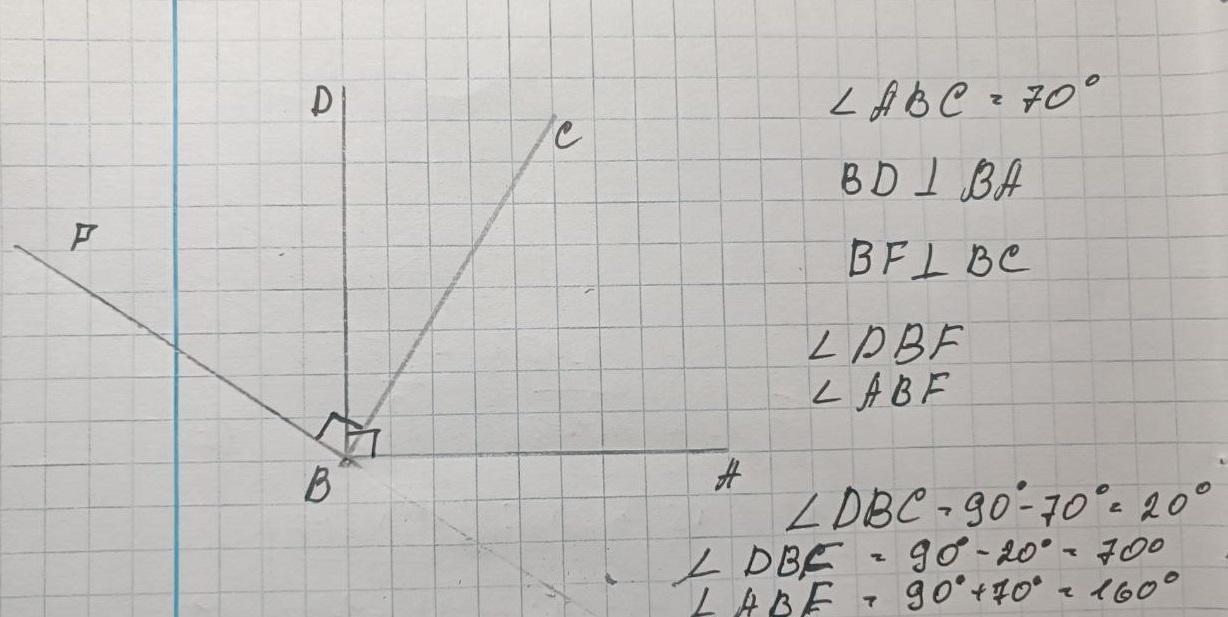 D
C
F
B
A
∠ABC = 70°
BD ⊥ BA
BF ⊥ BC
∠DBF
∠ABF
∠DBC = 90° - 70° = 20°
∠DBF = 90° - 20° = 70°
∠ABF = 90° + 70° = 160°